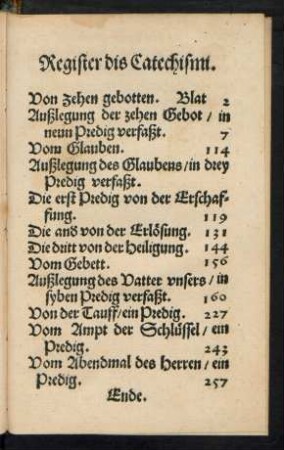 Register dis Catechismi.
Von zehen gebotten. Blat 2
Außlegung der zehen Gebot / in
neun Predig verfaßt. 7
Vom Glauben. 114
Außlegung des Glaubens / in drey
Predig verfaßt.
Die erst Predig von der Erschaf-
fung. 119
Die and von der Erlösung. 131
Die dritt von der Heiligung. 144
Vom Gebett. 156
Außlegung des Vatter vnsers / in
syben Predig verfaßt. 160
Von der Tauff / ein Predig. 227
Vom Ampt der Schlüssel / ein
Predig. 243
Vom Abendmal des Herren / ein
Predig. 257
Ende.